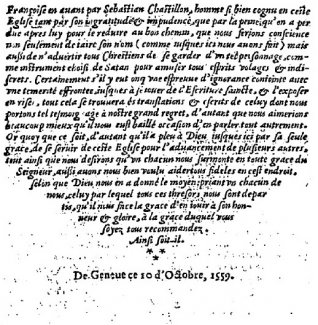 Françoise en auant par Sebastian Chastillon, homme si bien cognu en ceste
Eglise tant par son ingratitude & impudence, que par la peine qu'on a per
due apres luy pour le reduire au bon chemin, que nous ferions conscience
non seulement de taire son nom (comme iusques ici nous auons fait) mais
aussi de n'aduertir tous Chrestiens de se garder d'vn tel personnage, com-
me instrument choisi de Satan pour amuser tous esprits volages & indi-
screts. Certainement s'il y eut onq vne espreuue d'ignorance coniointe auec
vne temerité effrontee, iusques à se iouer de l'Escriture saincte, & l'exposer
en risee, tout cela se trouuera és translations & escrits de celuy dont nous
portons tel tesmoignage à nostre grand regret, d'autant que nous aimerions
beaucoup mieux qu'il nous eust baillé occasion d'en parler tout autrement.
Or quoy que ce soit, d'autant qu'il a pleu à Dieu iusques ici par sa seule
grace, de se seruir de ceste Eglise pour l'aduancement de plusieurs autres,
tout ainsi que nous desirons qu'vn chacun nous surmonte en toute grace du
Seigneur, aussi auons nous bien voulu aider tous fideles en cest endroit,
selon que Dieu nous en a donné le moyen: priant vn chacun de
nous, celuy par lequel tous ces thresors nous sont depar
tis, qu'il nous face la grace d'en iouir à son hon-
neur & gloire, à la grace duquel vous
soyez tous recommandez.
Ainsi soit-il.
De Geneue ce 10 d'Octobre, 1559.